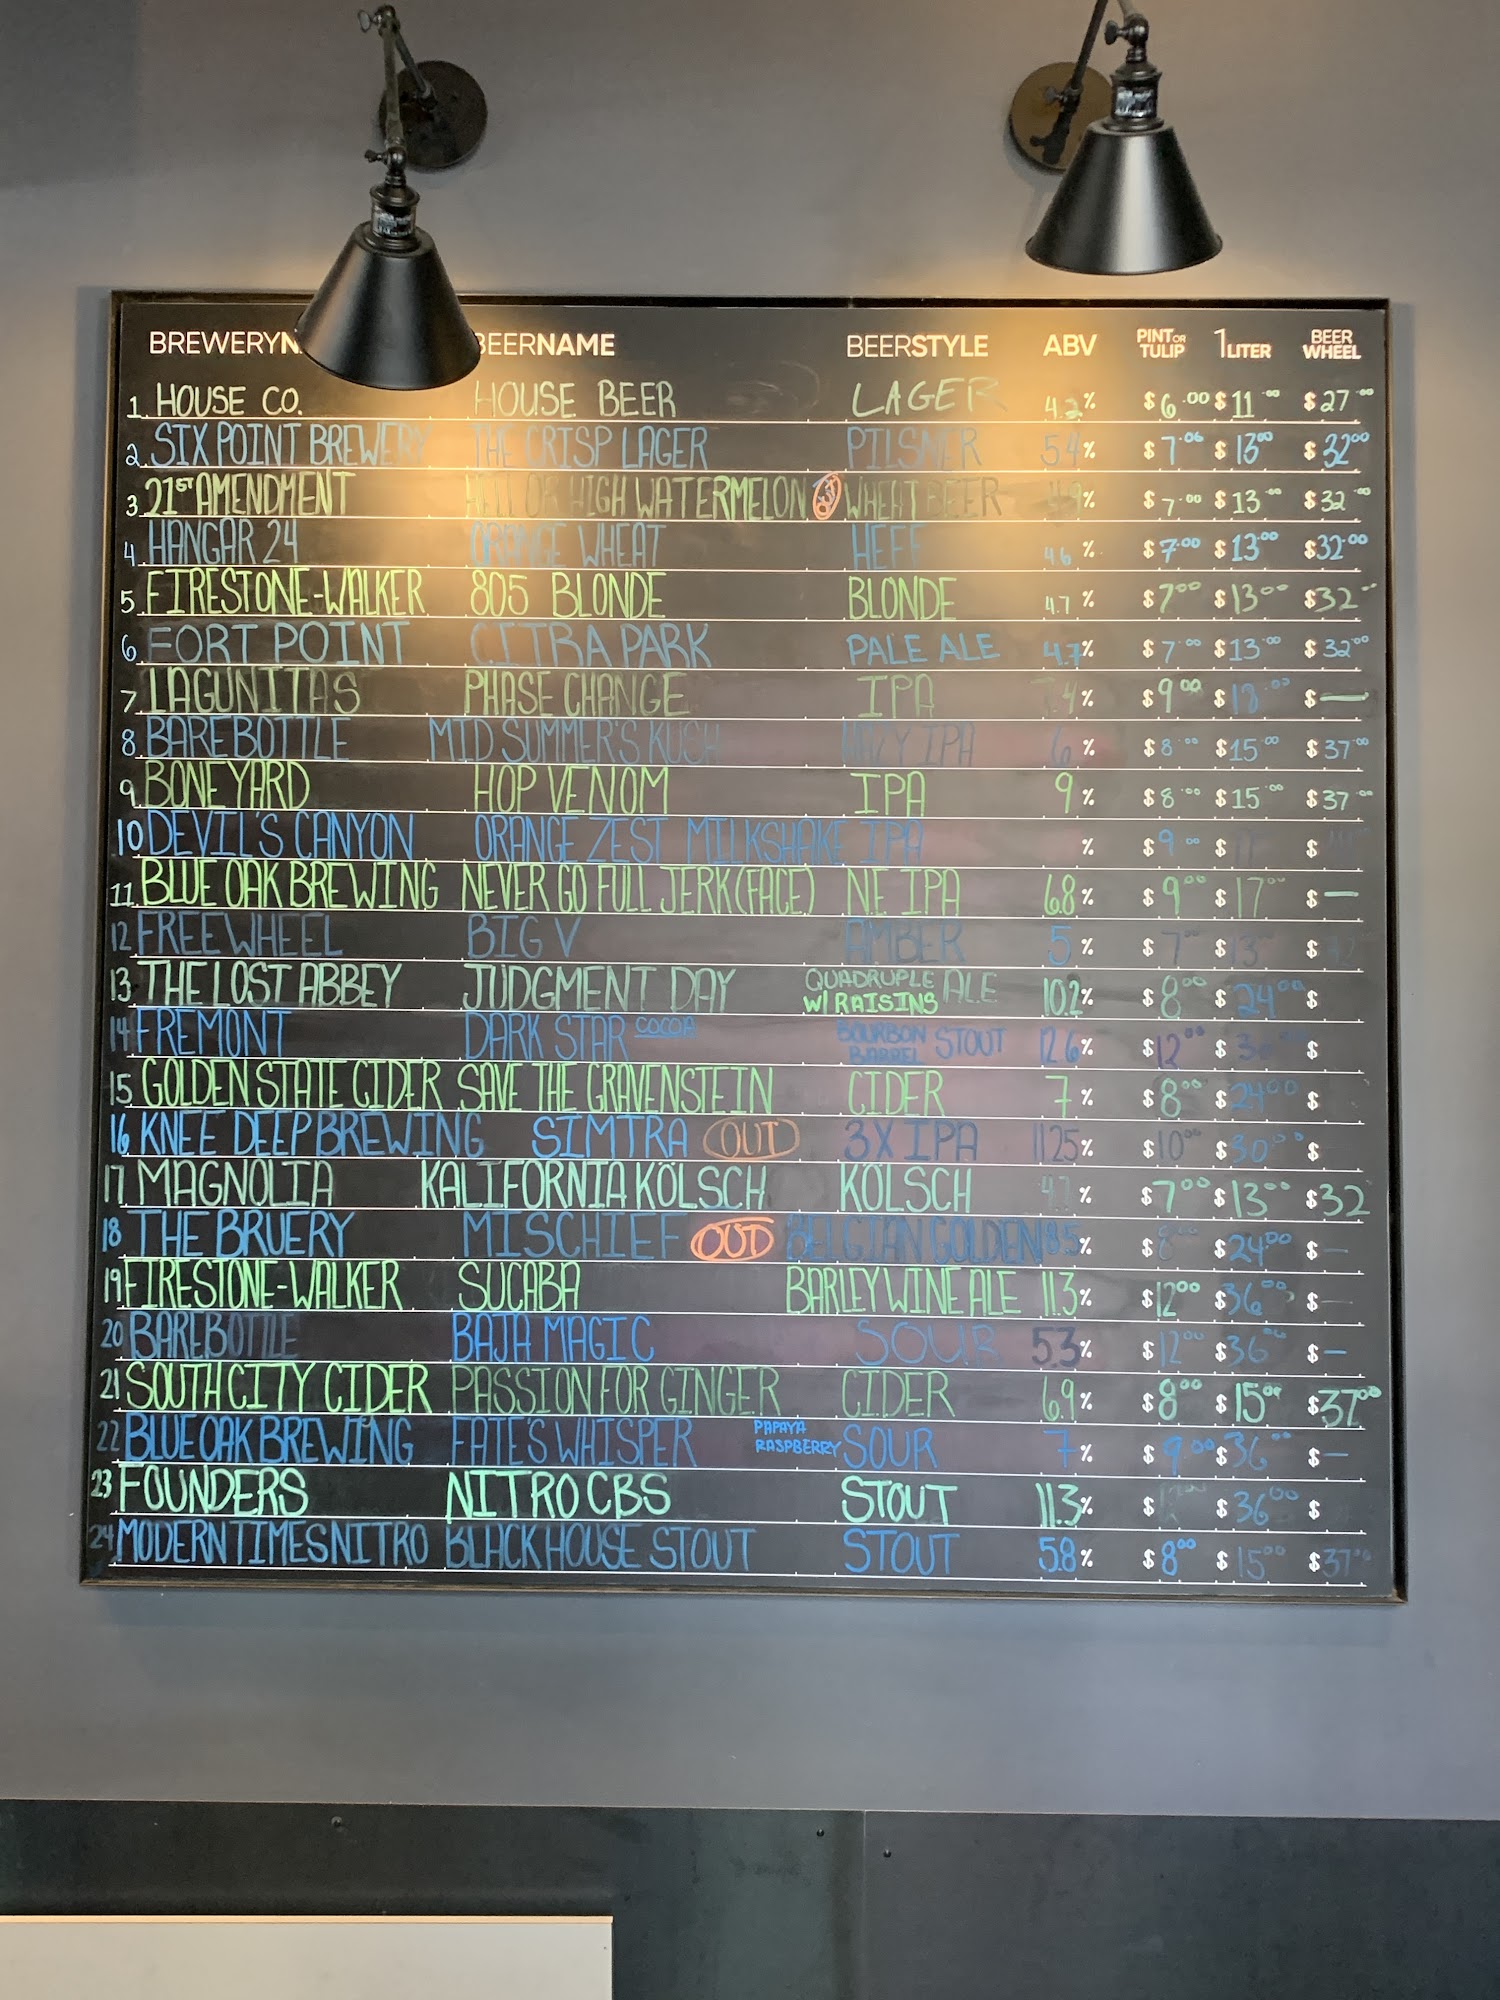 BREWERYN BEERNAME BEERSTYLE ABV PINT OR TULIP 1 LITER BEER WHEEL
1. HOUSE CO. HOUSE BEER LAGER 4.2% $6.00 $11.00 $27.00
2. SIX POINT BREWERY THE CRISP LAGER PILSNER 5.4% $7.00 $13.00 $32.00
3. 21ST AMENDMENT HELL OR HIGH WATERMELON OUT WHEAT BEER 4.9% $7.00 $13.00 $32.00
4. HANGAR 24 ORANGE WHEAT HEFF 4.6% $7.00 $13.00 $32.00
5. FIRESTONE-WALKER 805 BLONDE BLONDE 4.7% $7.00 $13.00 $32
6. FORT POINT CITRA PARK PALE ALE 4.7% $7.00 $13.00 $32.00
7. LAGUNITAS PHASE CHANGE IPA % $9.00 $18.00 $—
8. BAREBOTTLE MID SUMMER'S KUCH HAZY IPA 6% $8.00 $15.00 $37.00
9. BONEYARD HOP VENOM IPA 9% $8.00 $15.00 $37.00
10 DEVIL'S CANYON ORANGE ZEST MILKSHAKE IPA % $9.00 $ $
11. BLUE OAK BREWING NEVER GO FULL JERK (FACE) N.E. IPA 6.8% $9.00 $17.00 $—
12 FREEWHEEL BIG V AMBER 5% $7.00 $13.00 $32
13 THE LOST ABBEY JUDGMENT DAY QUADRUPLE ALE W/ RAISINS 10.2% $8.00 $24.00 $
14 FREMONT DARK STAR COCOA BOURBON BARREL STOUT 12.6% $12.00 $30 $
15 GOLDEN STATE CIDER SAVE THE GRAVENSTEIN CIDER 7% $8.00 $24.00 $
16 KNEE DEEP BREWING SIMTRA OUT 3X IPA 11.25% $10.00 $30.00 $
17 MAGNOLIA KALIFORNIA KÖLSCH KÖLSCH 4.7% $7.00 $13.00 $32
18 THE BRUERY MISCHIEF OUT BELGIAN GOLDEN 8.5% $8.00 $24.00 $—
19 FIRESTONE-WALKER SUCABA BARLEY WINE ALE 11.3% $12.00 $36.00 $—
20 BAREBOTTLE BAJA MAGIC SOUR 5.3% $12.00 $36.00 $—
21 SOUTH CITY CIDER PASSION FOR GINGER CIDER 6.9% $8.00 $15.00 $37.00
22 BLUE OAK BREWING FATE'S WHISPER PAPAYA RASPBERRY SOUR 7% $9.00 $36.00 $—
23 FOUNDERS NITRO CBS STOUT 11.3% $ $36.00 $
24 MODERN TIMES NITRO BLACK HOUSE STOUT STOUT 5.8% $8.00 $15.00 $37.00